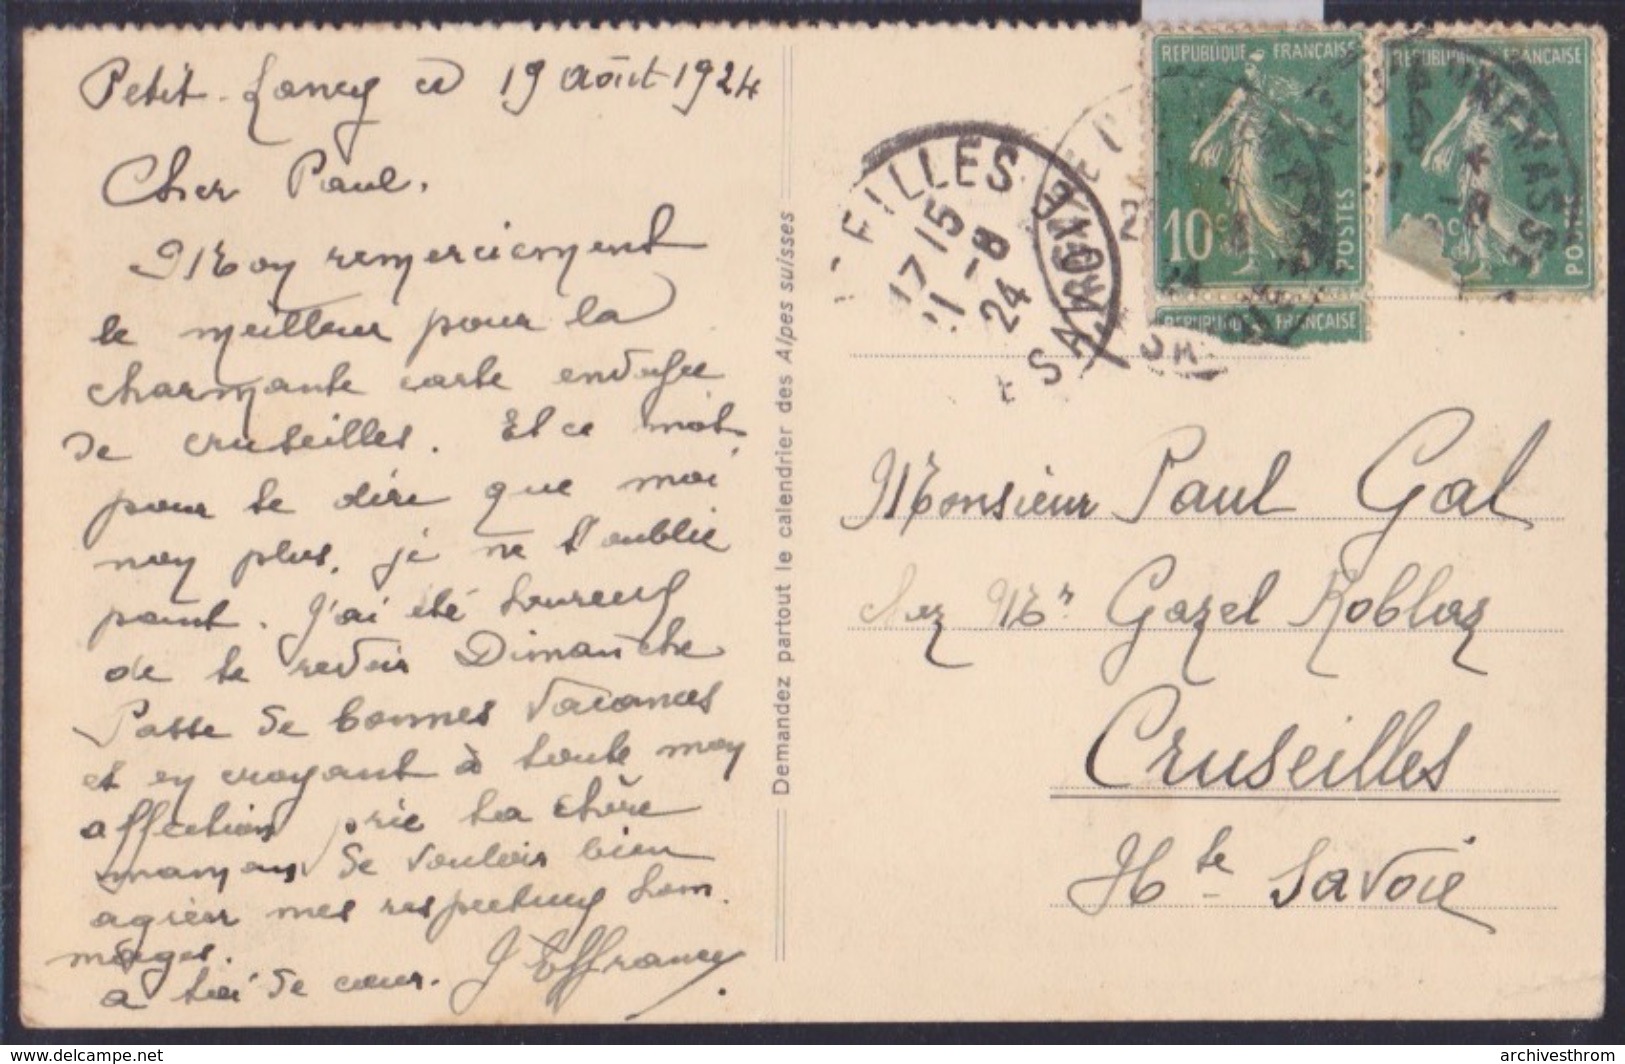 Petit-Lancy ce 19 Août 1924
Cher Paul.
Mon remerciement
le meilleur pour la
charmante carte envoyée
de Cruseilles. Et ce mot
pour te dire que moi
non plus, je ne t'oublie
point. J'ai été heureux
de te revoir Dimanche
Passe de bonnes vacances
et en croyant à toute mon
affection prie ta chère
maman de vouloir bien
agréer mes respectueux hom.
mages.
à toi de cœur. J Effrancey
Demandez partout le calendrier des Alpes suisses
REPUBLIQUE FRANÇAISE
10c
POSTES
REPUBLIQUE FRANÇAISE
REPUBLIQUE FRANÇAISE
POSTES
FILLES
17 15
-8
24
SAVOIE
Monsieur Paul Gal
chez Mr Gazel Roblaz
Cruseilles
Hte Savoie
https://www.delcampe.net
archivesthrom